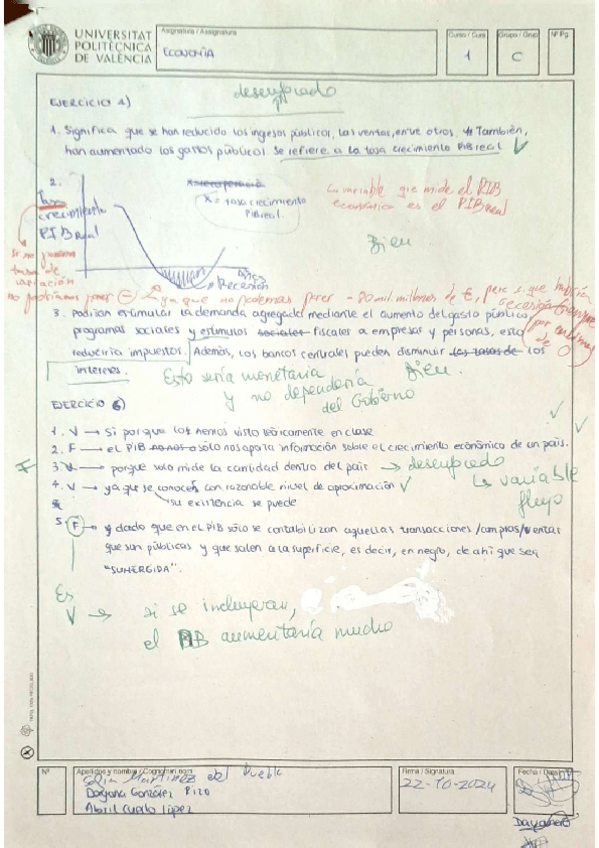 UNIVERSITAT
POLITÈCNICA
DE VALÈNCIA
Asignatura / Assignatura
ECONOMÍA
Curso / Curs
1
Grupo / Grup
C
Nº Pg.
desempleado
EJERCICIO 4)
1. Significa que se han reducido los ingresos públicos, las ventas, entre otros. También,
han aumentado los gastos públicos. Se refiere a la tasa crecimiento PIB real
2.
Tasa
crecimiento
PIB real
X = tasa crecimiento
PIB real.
La variable que mide el PIB
económico es el PIB real
Bien
Recesión
Años
Si no
tasa de
variación
no podríamos poner ⊖
ya que no podemos poner -80 mil millones de €, pero si que habría
recesión
por
de 0
3. Podrían estimular la demanda agregada mediante el aumento del gasto público,
programas sociales y estímulos sociales fiscales a empresas y personas, esto
reduciría impuestos. Además, los bancos centrales pueden disminuir las tasas de los
intereses.
Esto sería monetaria
y no dependería
del Gobierno
Bien.
EJERCICIO 6)
1. V → Si porque los hemos visto teóricamente en clase
2. F → el PIB sólo nos aporta información sobre el crecimiento económico de un país.
F
3. V → porque solo mide la cantidad dentro del país → desempleado
4. V → ya que se conocen con razonable nivel de aproximación
su existencia se puede
La variable
flujo
5. F → y dado que en el PIB sólo se contabilizan aquellas transacciones /compras/ventas
que son públicas y que salen a la superficie, es decir, en negro, de ahí que sea
"SUMERGIDA".
Es
V → si se incluyeran,
el PIB aumentaría mucho
Nº
Apellidos y nombre / Cognoms i nom
Martínez del Puebla
Dayana González Rizo
Abril Cuello López
Firma / Signatura
22-10-2024
Fecha / Data